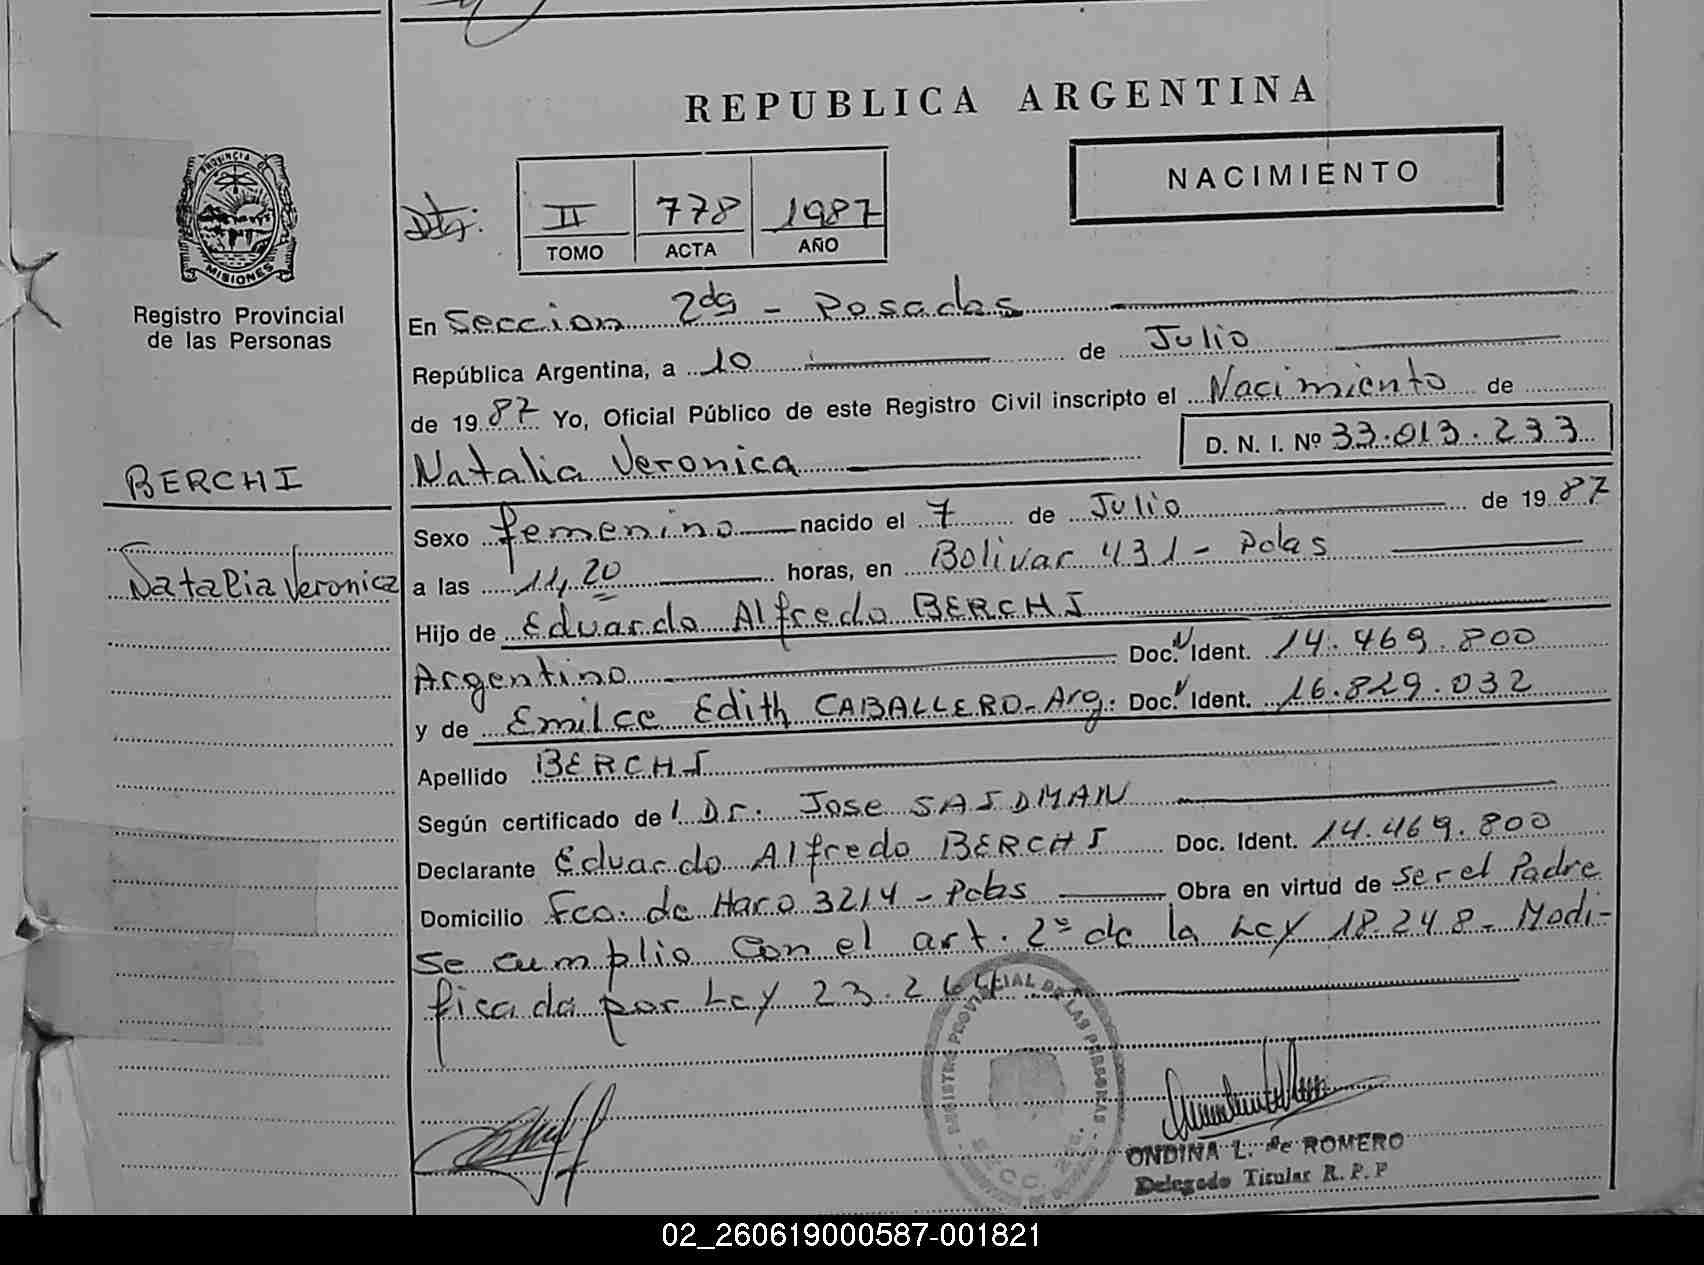 REPUBLICA ARGENTINA
NACIMIENTO
PROVINCIA DE
MISIONES
Registro Provincial
de las Personas
II 778 1987
TOMO ACTA AÑO
En Seccion 2da - Posadas
República Argentina, a 10 de Julio
de 1987 Yo, Oficial Público de este Registro Civil inscripto el Nacimiento de
Natalia Veronica D. N. I. Nº 33.013.233
BERCHI
Natalia Veronica
Sexo femenino nacido el 7 de Julio de 1987
a las 11,20 horas, en Bolivar 431 - Pdas
Hijo de Eduardo Alfredo BERCHI
Argentino Doc. N Ident. 14.469.800
y de Emilce Edith CABALLERO - Arg. Doc. N Ident. 16.829.032
Apellido BERCHI
Según certificado de l Dr. Jose SAIDMAN
Declarante Eduardo Alfredo BERCHI Doc. Ident. 14.469.800
Domicilio Fco. de Haro 3214 - Pdas Obra en virtud de ser el Padre
Se cumplio con el art. 2º de la Ley 18.248 - Modi-
ficada por Ley 23.264
REGISTRO PROVINCIAL DE LAS PERSONAS
SECC. 2da.
ONDINA L. de ROMERO
Delegado Titular R. P. P
02_260619000587-001821